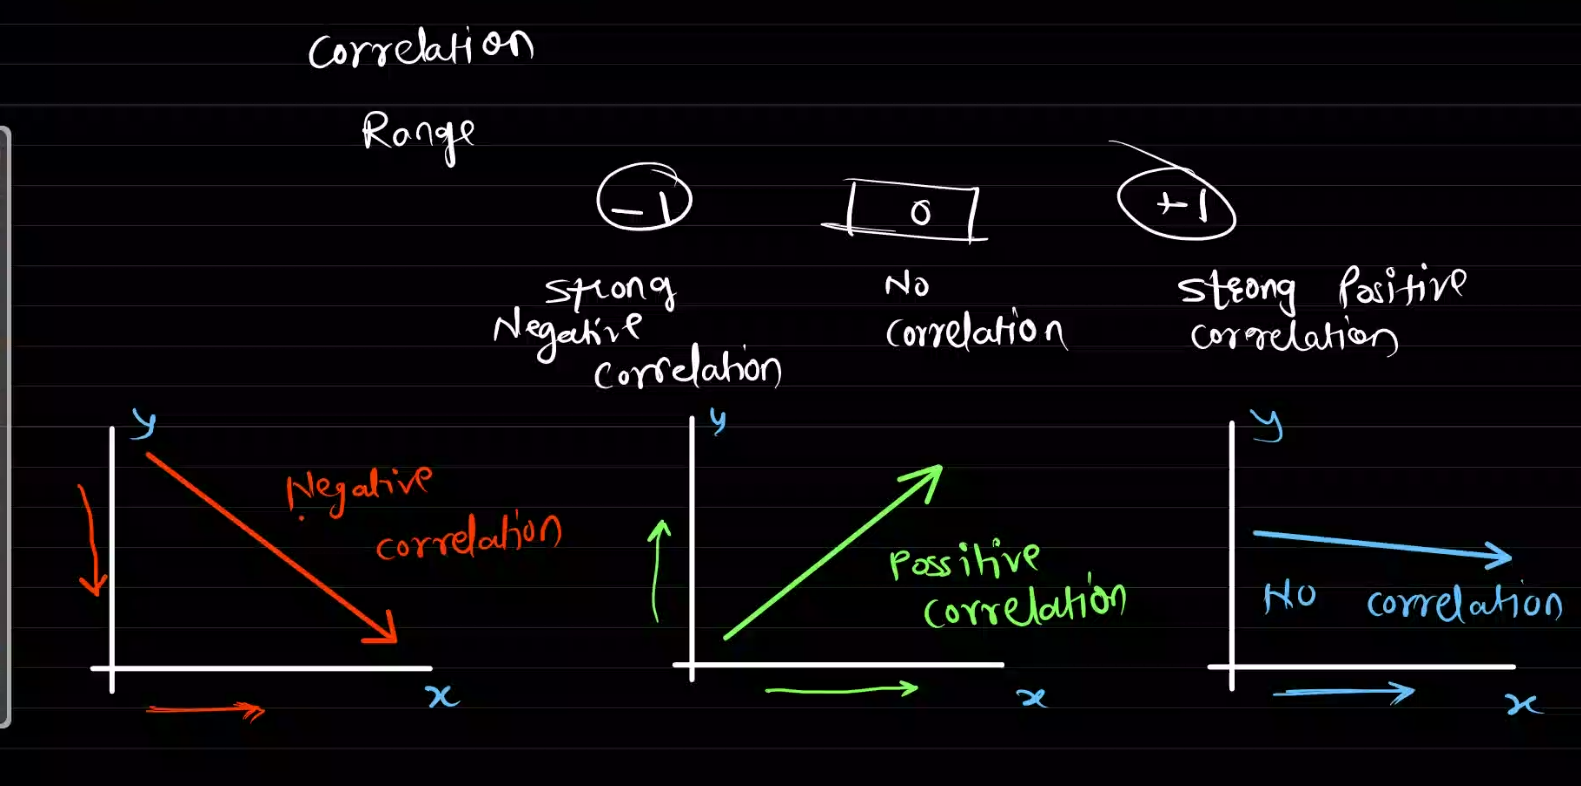 Correlation
Range
-1 0 +1
Strong
Negative
Correlation
No
Correlation
Strong Positive
Correlation
y
Negative
correlation
x
y
Possitive
correlation
x
y
No correlation
x